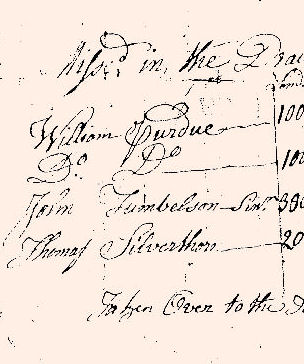 in the
William Purdue 100
Do Do 10
John Tumbelson Sinr 330
Thomas Silverthorn 20
Taken Over to the